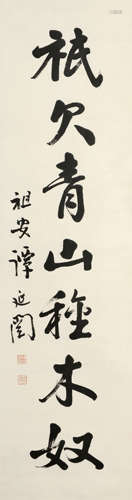 祇欠青山種木奴
祖安譚延闓